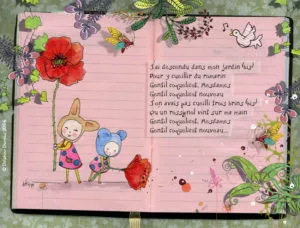 J'ai descendu dans mon jardin (bis)
Pour y cueillir du romarin
Gentil coquelicot, Mesdames
Gentil coquelicot nouveau
J'en avais pas cueilli trois brins (bis)
Qu'un rossignol vint sur ma main
Gentil coquelicot, Mesdames
Gentil coquelicot nouveau...